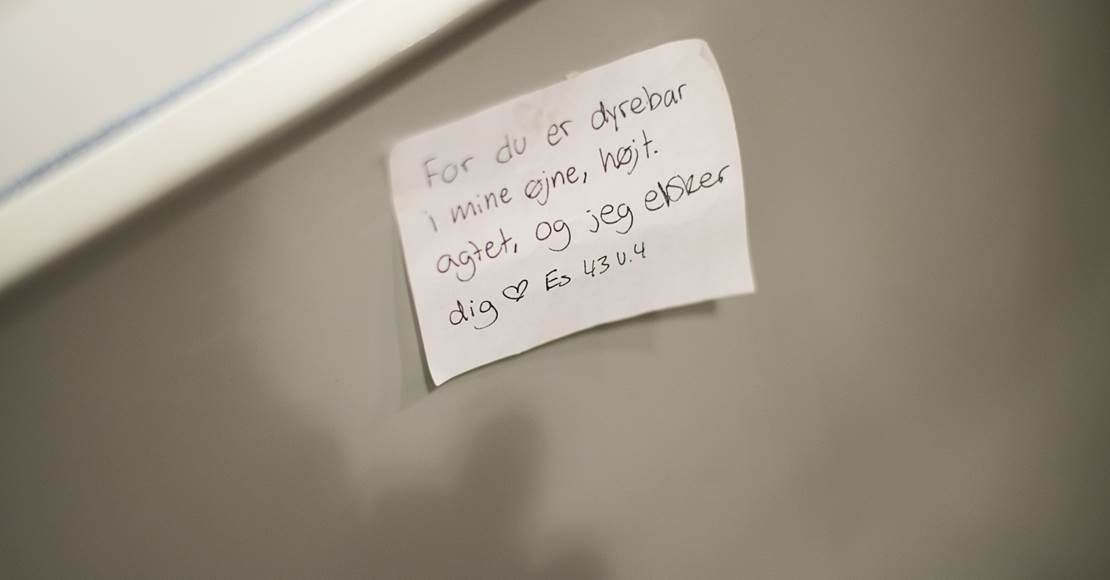 For du er dyrebar
i mine øjne, højt.
agtet, og jeg elsker
dig ♡ Es 43 v.4